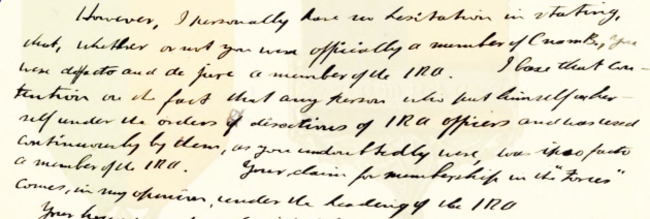 However, I personally have no hesitation in stating,
that, whether or not you were officially a member of Cnam B., you
were defacto and de jure a member of the IRA. I base that con-
tention on the fact that any person who put himself or her-
self under the orders of directions of IRA officers and was used
continuously by them, as you undoubtedly were, was ipso facto
a member of the IRA. Your claim for membership in the "Forces"
comes, in my opinion, under the heading of the IRA
Your